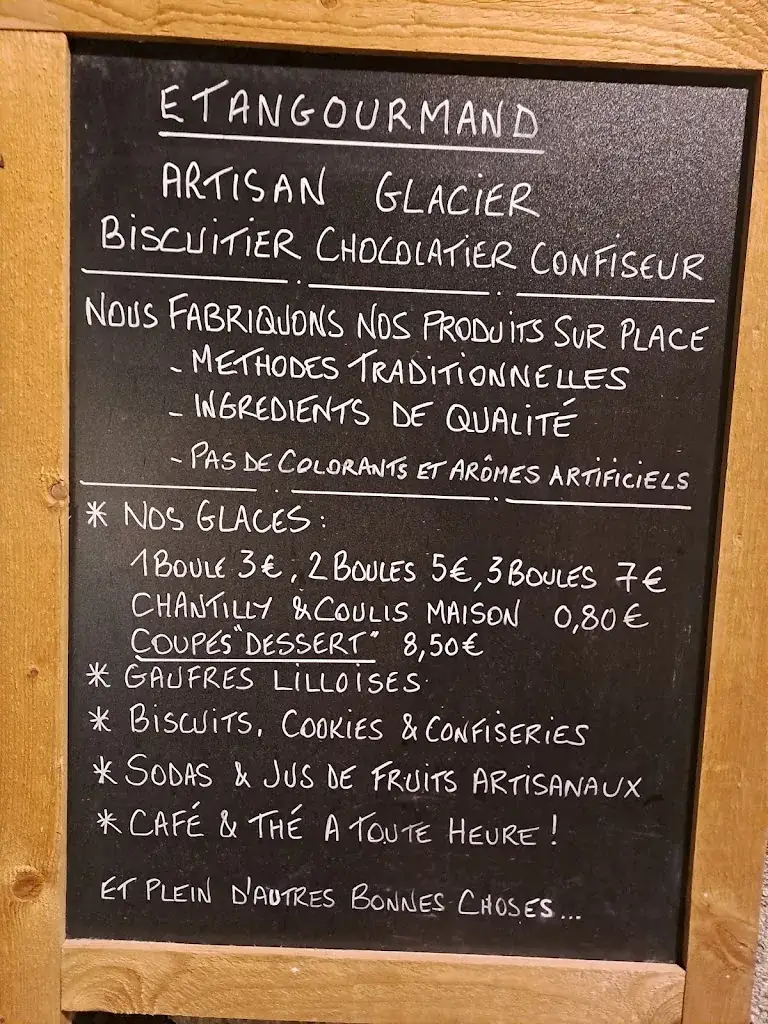 ETANGOURMAND
ARTISAN GLACIER
BISCUITIER CHOCOLATIER CONFISEUR
NOUS FABRIQUONS NOS PRODUITS SUR PLACE
- METHODES TRADITIONNELLES
- INGREDIENTS DE QUALITÉ
- PAS DE COLORANTS ET ARÔMES ARTIFICIELS
* NOS GLACES :
1 BOULE 3€, 2 BOULES 5€, 3 BOULES 7€
CHANTILLY & COULIS MAISON 0,80€
COUPES "DESSERT" 8,50€
* GAUFRES LILLOISES
* BISCUITS, COOKIES & CONFISERIES
* SODAS & JUS DE FRUITS ARTISANAUX
* CAFÉ & THÉ A TOUTE HEURE !
ET PLEIN D'AUTRES BONNES CHOSES...